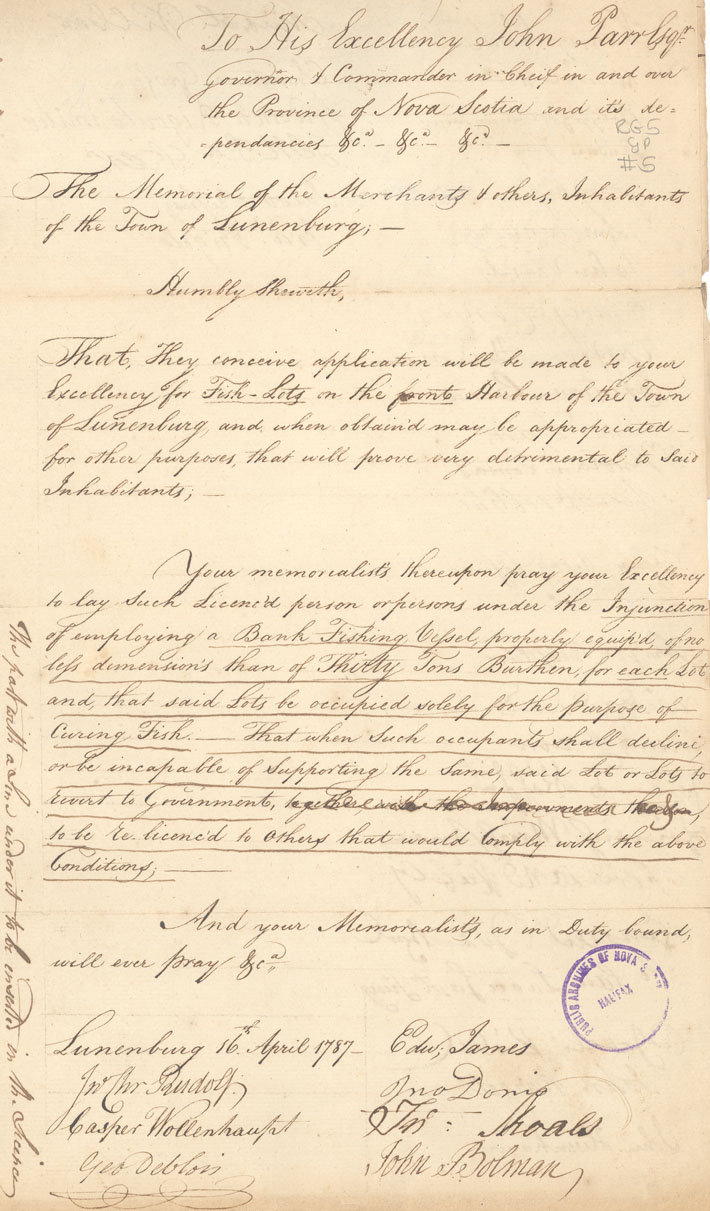 To His Excellency John Parr Esqr.
Governor & Commander in Cheif in and over
the Province of Nova Scotia and it's de=
-pendancies &ca. - &ca. - &ca. -
RG5
GP
#5
The Memorial of the Merchants & others, Inhabitants
of the Town of Lunenburg; —
Humbly Sheweth,
That, They conceive application will be made to your
Excellency for Fish-Lots on the front Harbour of the Town
of Lunenburg, and, when obtain'd may be appropriated -
for other purposes, that will prove very detrimental to said
Inhabitants; —
Your memorialist's thereupon pray your Excellency
to lay such Licenc'd person or persons under the Injunction
of employing a Bank Fishing Vessel, properly equip'd, of no
less dimension's than of Thirty Tons Burthen, for each Lot
and, that said Lots be occupied solely for the purpose of -
Curing Fish. — That when such occupants shall decline,
or be incapable of supporting the same, said Lot or Lots to
revert to Government, together with the Improvements thereon,
to be re-licenc'd to others that would comply with the above
Conditions; —
And your Memorialist's, as in Duty bound,
will ever pray &ca.
Lunenburg 16th. April 1787 -
Edw; James
Jno Chr Rudolf
Jno Donig
Casper Wollenhaupt
Koals
Geo Deblois
John Bolman
The part with a Line under it to be inserted in the Licence
PUBLIC ARCHIVES OF NOVA
HALIFAX